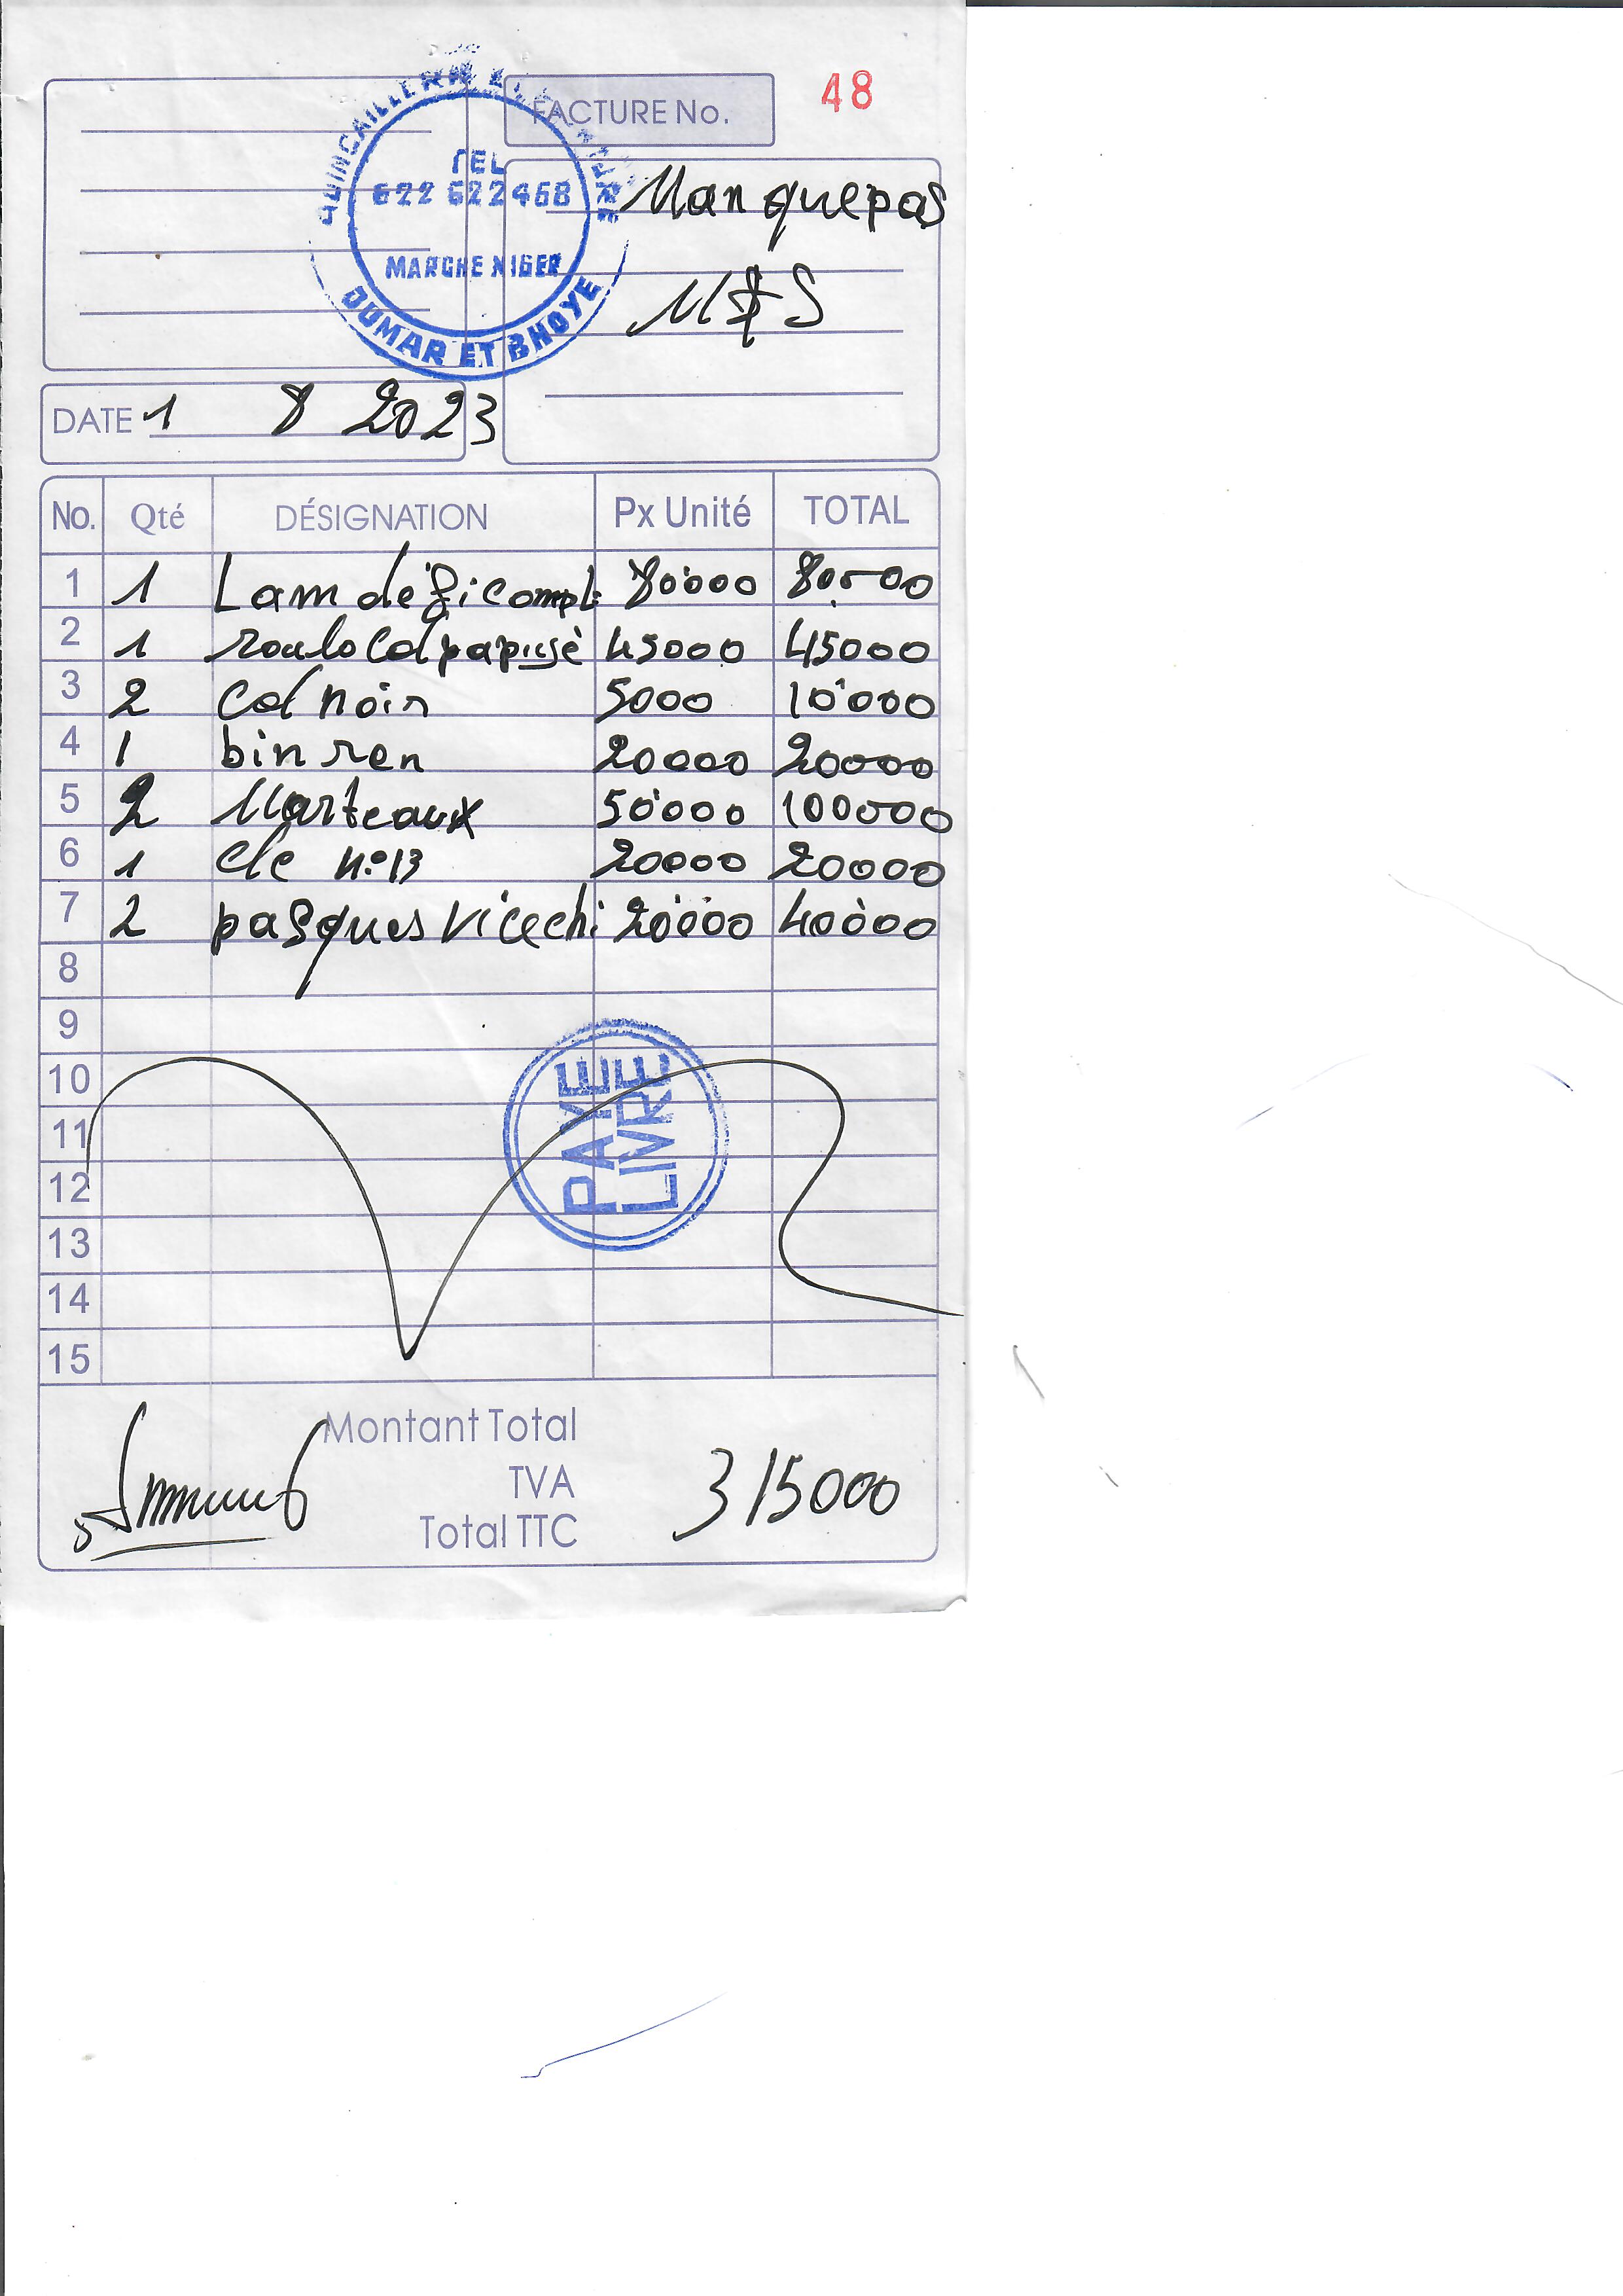 FACTURE No. 48
QUINCAILLERIE
TEL
622 622 468
MARCHE NIGER
OUMAR ET BHOYE
Manquepas
M$S
DATE 1 8 2023
No. Qté DÉSIGNATION Px Unité TOTAL
1 1 Lam deficompl 80000 80000
2 1 roulo Col papusè 45000 45000
3 2 Col noir 5000 10000
4 1 bin ren 20000 20000
5 2 Marteaux 50000 100000
6 1 cle n:13 20000 20000
7 2 pasques vicechi 20000 40000
8
9
10
11
12
13
14
15
PAYE
LIVRE
Montant Total
TVA 315000
Total TTC